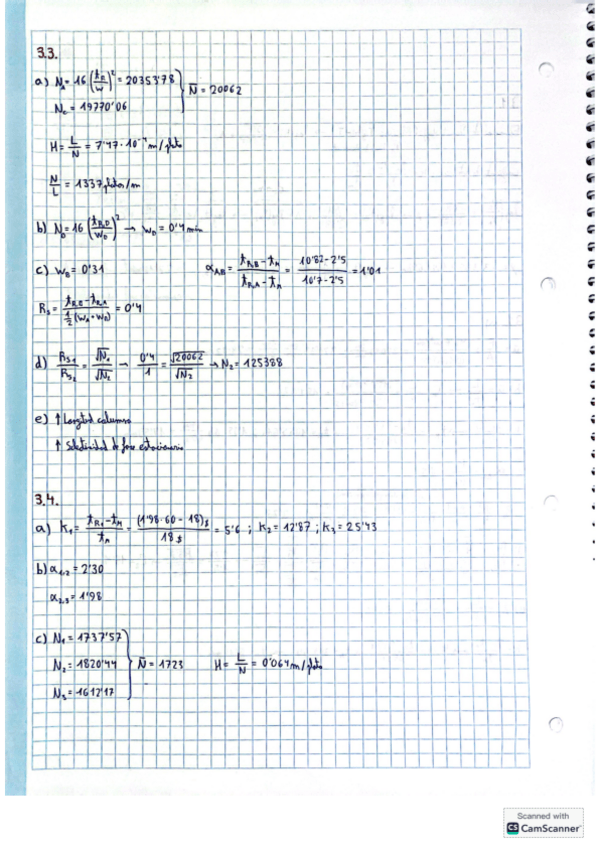 3.3.
a) N_A = 16 (t_R/w)² = 20353'78
N_C = 19770'06
N̄ = 20062
H = L/N = 7'47·10⁻⁴ m/plato
N/L = 1337 platos/m
b) N_D = 16 (t_RD/w_D)² → w_D = 0'4 min
c) w_B = 0'31
α_AB = (t_RB - t_M)/(t_RA - t_M) = (10'82 - 2'5)/(10'7 - 2'5) = 1'01
R_S = (t_RB - t_RA)/(½(w_A + w_B)) = 0'4
d) R_S1/R_S2 = √N_1/√N_2 → 0'4/1 = √20062/√N_2 → N_2 = 125388
e) ↑ Longitud columna
↑ Selectividad de fase estacionaria
3.4.
a) K_1 = (t_R1 - t_M)/t_M = (1'98·60 - 18)s/18 s = 5'6 ; K_2 = 12'87 ; K_3 = 25'43
b) α_1,2 = 2'30
α_2,3 = 1'98
c) N_1 = 1737'57
N_2 = 1820'44
N_3 = 1612'17
N̄ = 1723
H = L/N = 0'064 m/plato
Scanned with
CS CamScanner